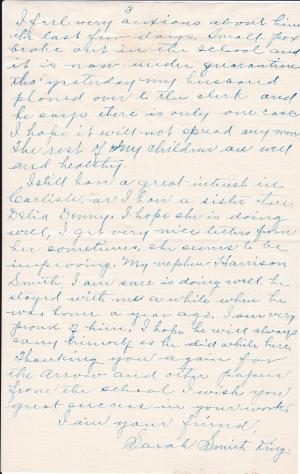 3
I feel very anxious about him
the last few days. Small pox
broke out in the school and
it is now under quarantine
tho' yesterday my husband
phoned over to the clerk and
he says there is only one case
I hope it will not spread any more
The rest of my children are well
and healthy.
I still have a great interest in
Carlisle, as I have a sister there,
Delia Denny. I hope she is doing
well, I get very nice letters from
her sometimes, she seems to be
improving. My nephew Harrison
Smith, I am sure is doing well he
stayed with us a while when he
was home a year ago. I am very
proud of him. I hope he will always
carry himself as he did while here.
Thanking you again for
the Arrow and other papers
from the school I wish you
great success in your work,
I am your friend,
Sarah Smith King.